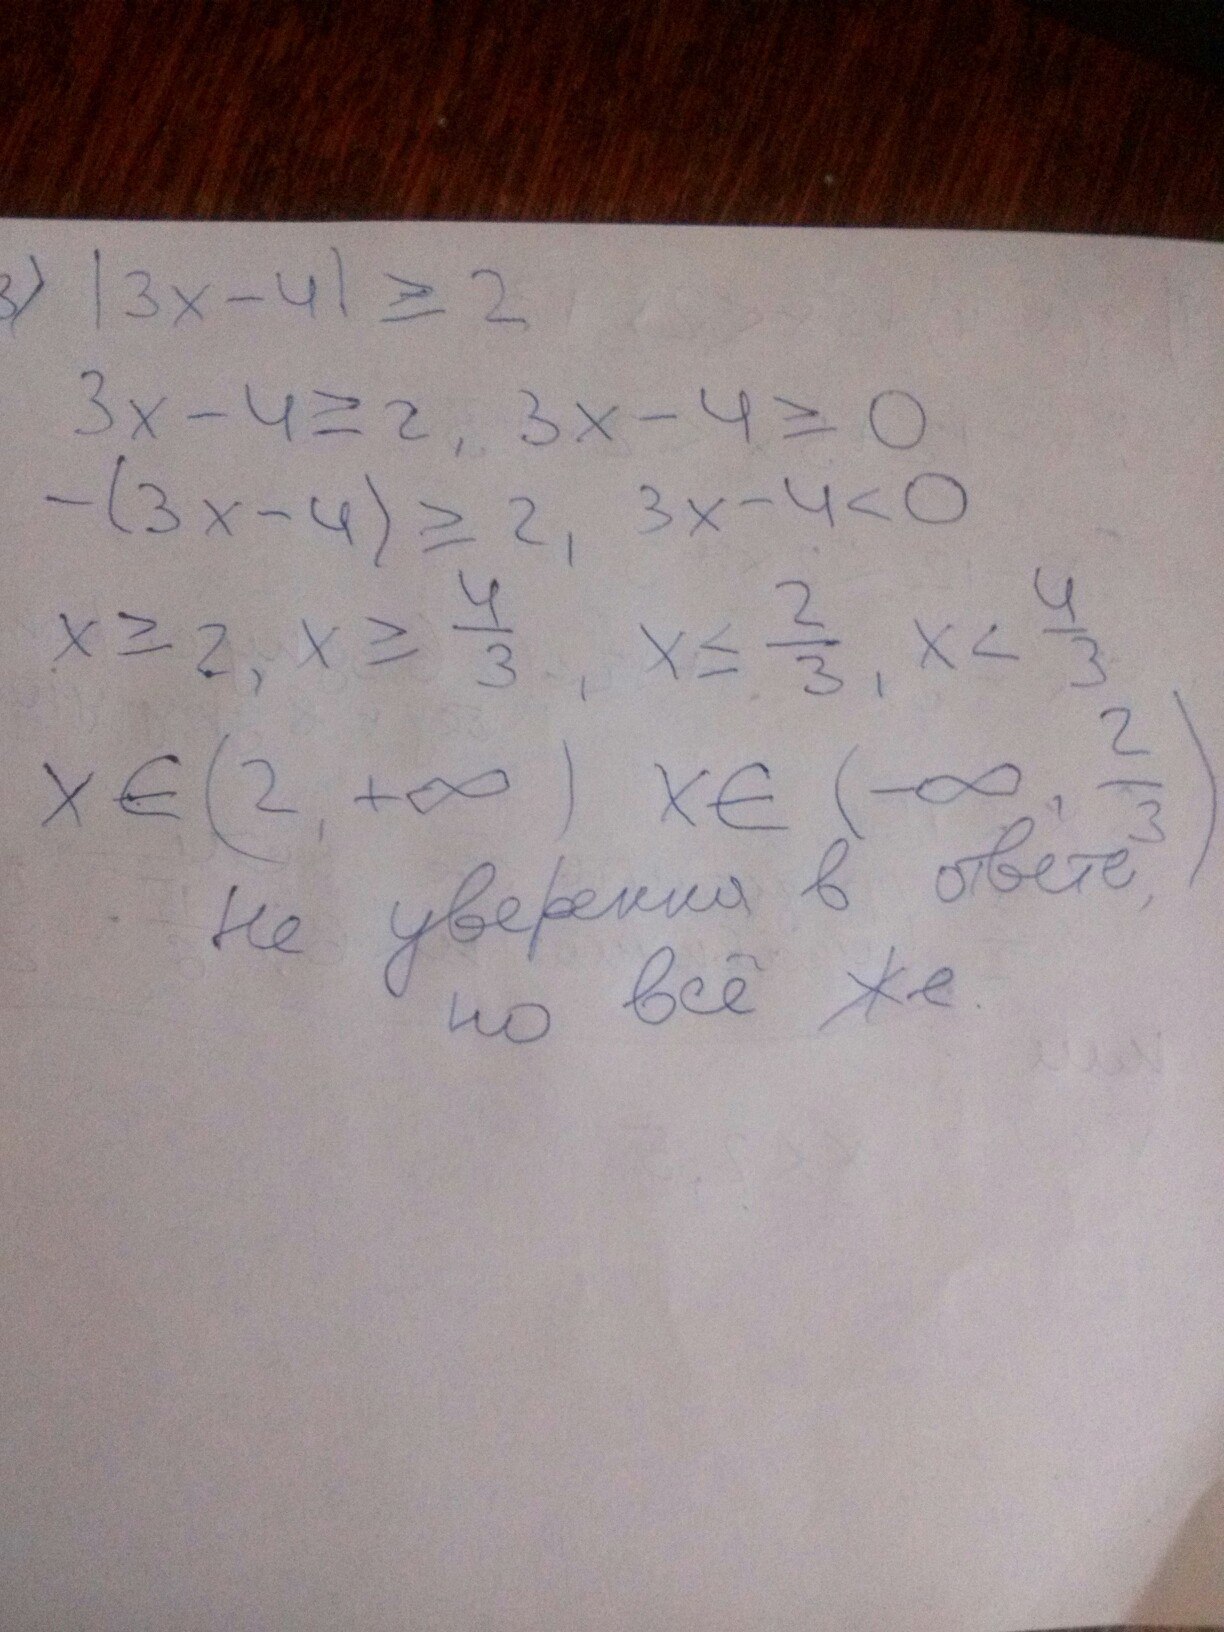 3) |3x-4| ≥ 2
3x-4≥2, 3x-4≥0
-(3x-4)≥2, 3x-4<0
x≥2, x≥4/3, x≤2/3, x<4/3
x∈(2,+∞) x∈(-∞,2/3)
Не уверенна в ответе,
но всё же.